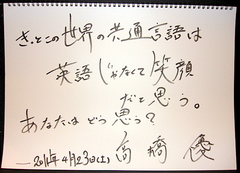 きっとこの世界の共通言語は
英語じゃなくて笑顔
だと思う。
あなたはどう思う?
2011年4月23日(土) 高橋 優